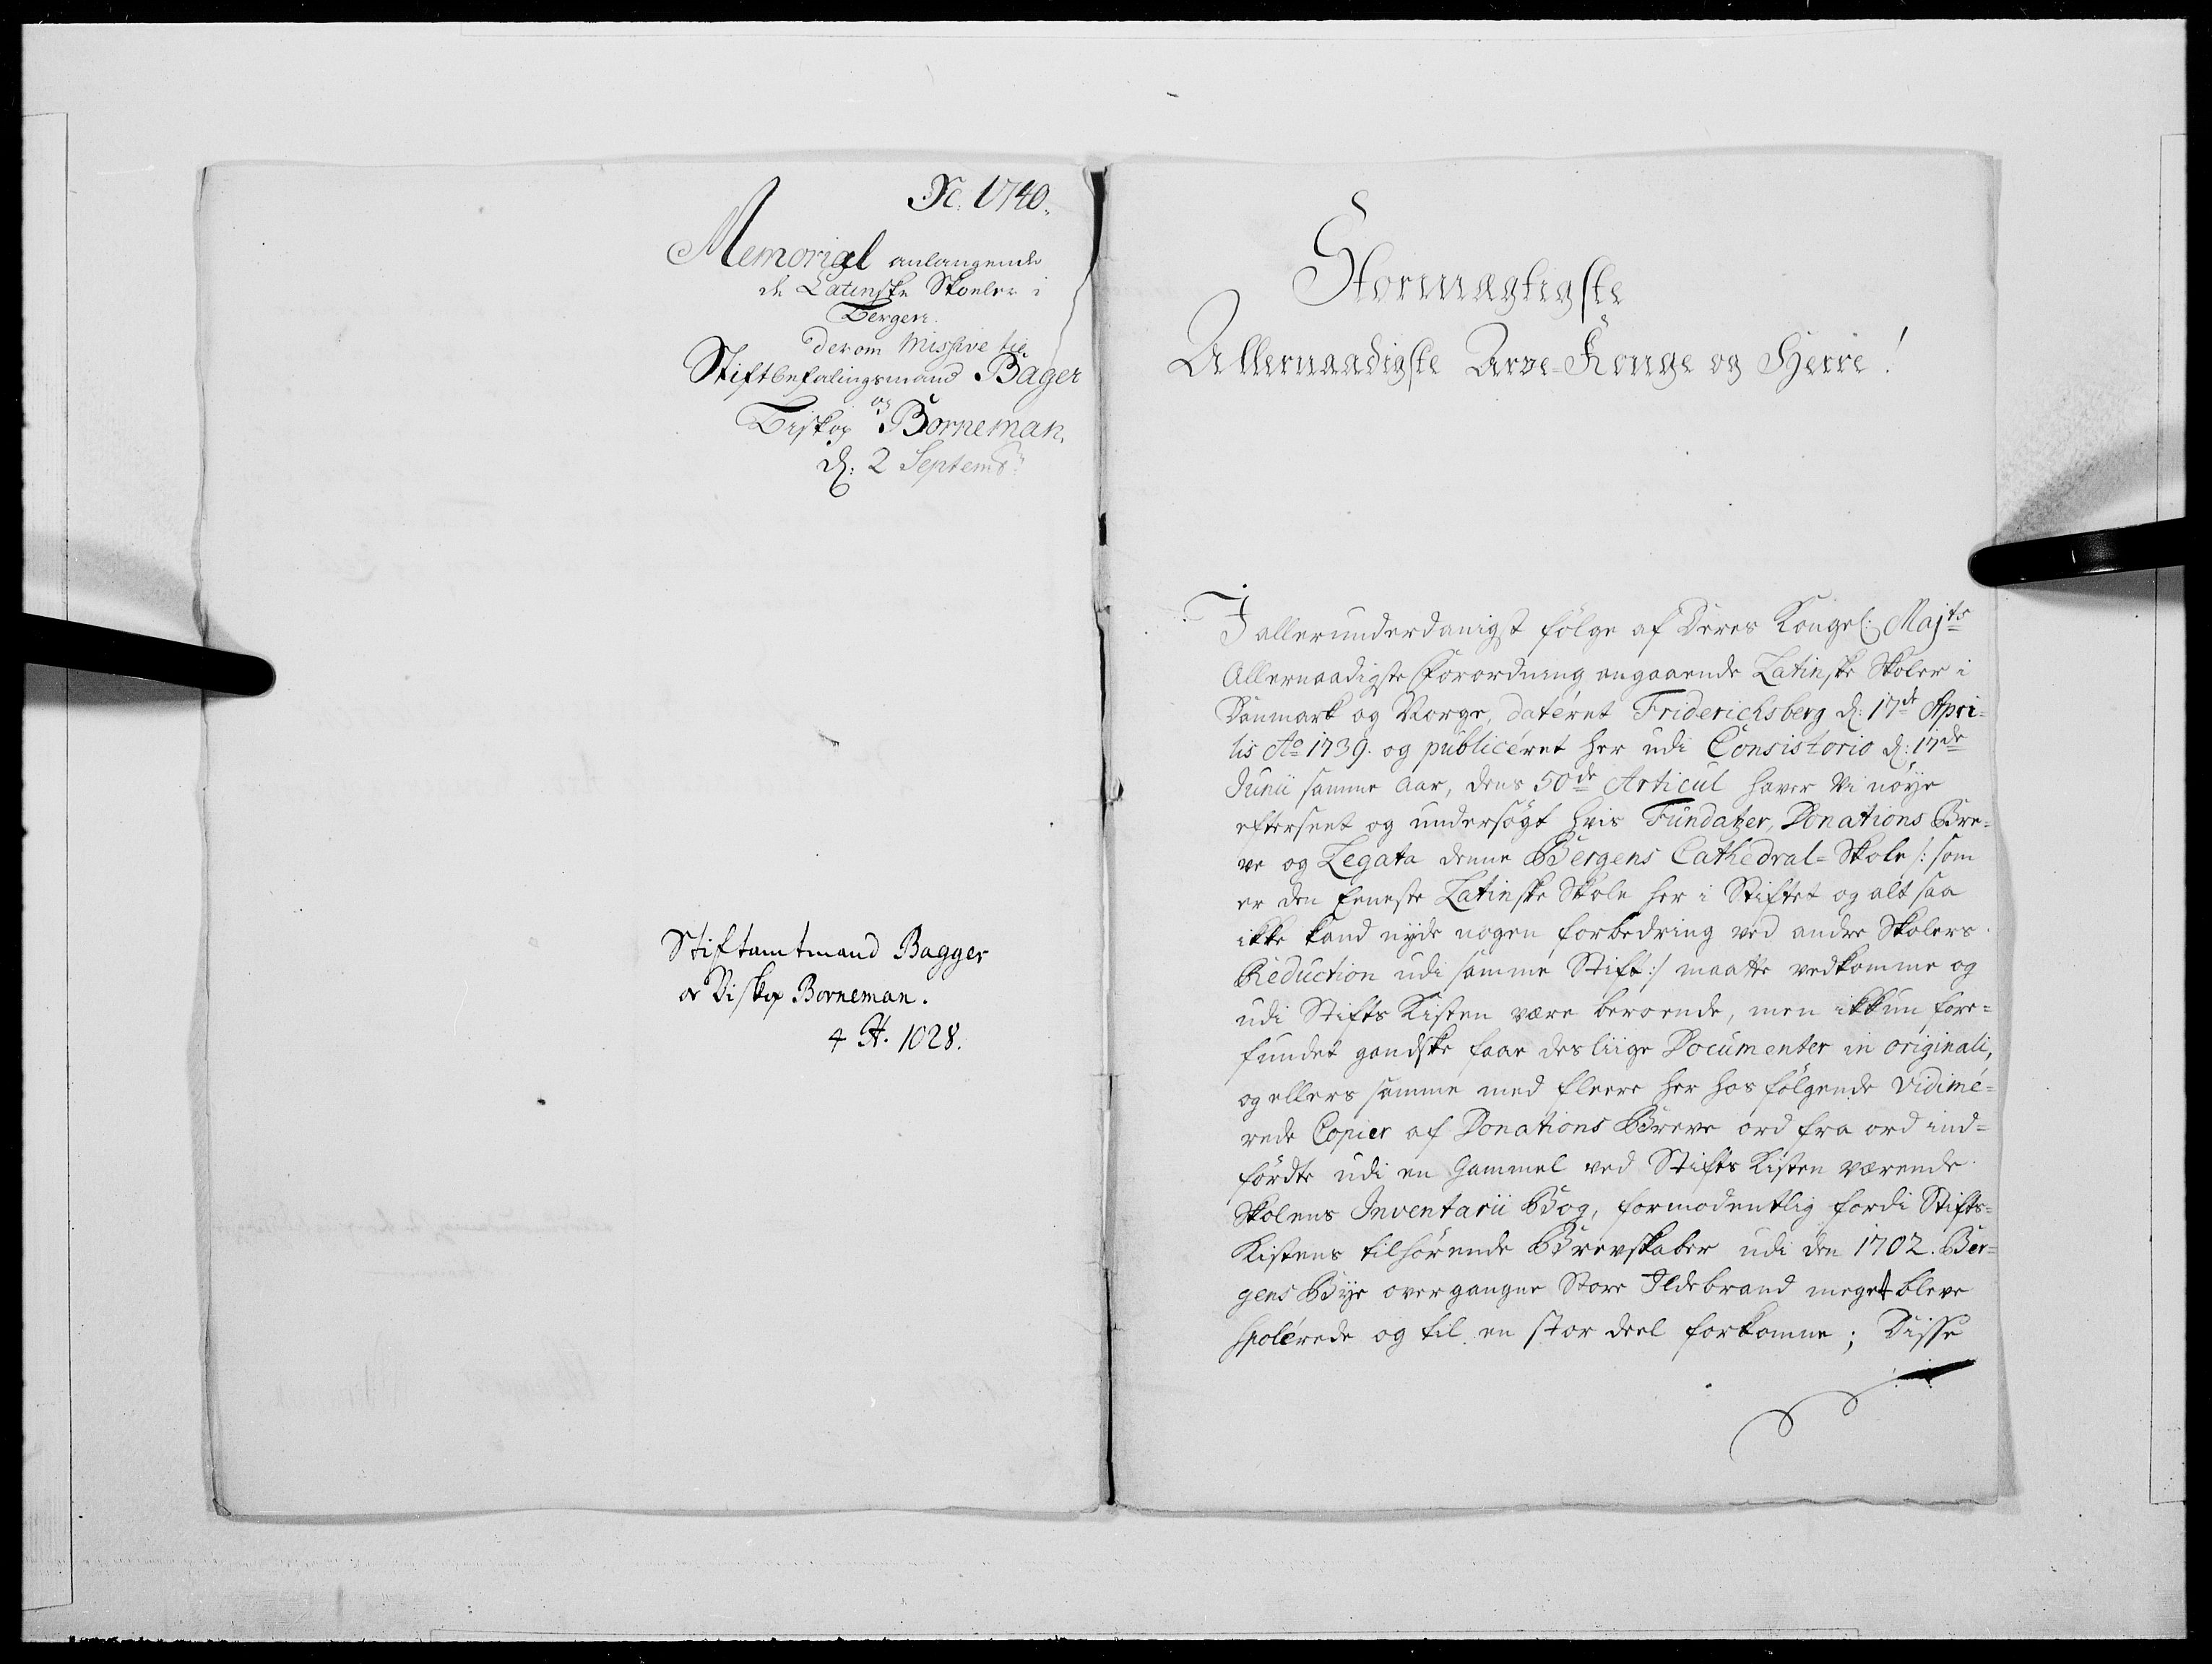 Xc. 1740.
Memorial anlangende
de Latinske Skoeler i
Bergen.
derom Missive til
Stiftbefalingsmand Bager
og
Biskop Borneman.
d: 2 Septemb:
Stiftamtmand Bagger
og Biskop Borneman.
4 A. 1028.
Stormægtigste
Allernaadigste Arve-Konge og Herre!
I allerunderdanigst følge af Deres Kongel: Majts
Allernaadigste Forordning angaaende Latinske Skoler i
Danmark og Norge, datéret Friderichsberg d: 17de Apri=
lis Ao 1739. og publicéret her udi Consistorio d: 17de
Junii samme Aar, dens 50de Articul haver Vi nøye
efterseet og undersøgt hvis Fundatzer, Donations Bre=
ve og Legata denne Bergens Cathedral=Skole /: som
er den Eeneste Latinske Skole her i Stiftet og alt saa
ikke kand nyde nogen forbedring ved andre Skolers
Reduction udi samme Stift :/ maatte vedkomme og
udi Stifts Kisten være beroende, men ikkun fore=
fundet gandske faae desliige Documenter in originali,
og ellers samme med fleere her hos følgende vidimé=
rede Copier af Donations Breve ord fra ord ind=
førdte udi en Gammel ved Stifts Kisten værende
Skolens Inventarii Bog, formodentlig fordi Stifts=
Kistens tilhørende Brevskaber udi den 1702. Ber=
gens Bye overgangne Store Ildebrand meget bleve
spolérede og til en stor deel forkomne; Disse